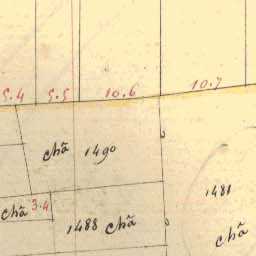 5.4 5.5 10.6 10.7
chã 1490
1481
chã 3.4
1488 chã
chã